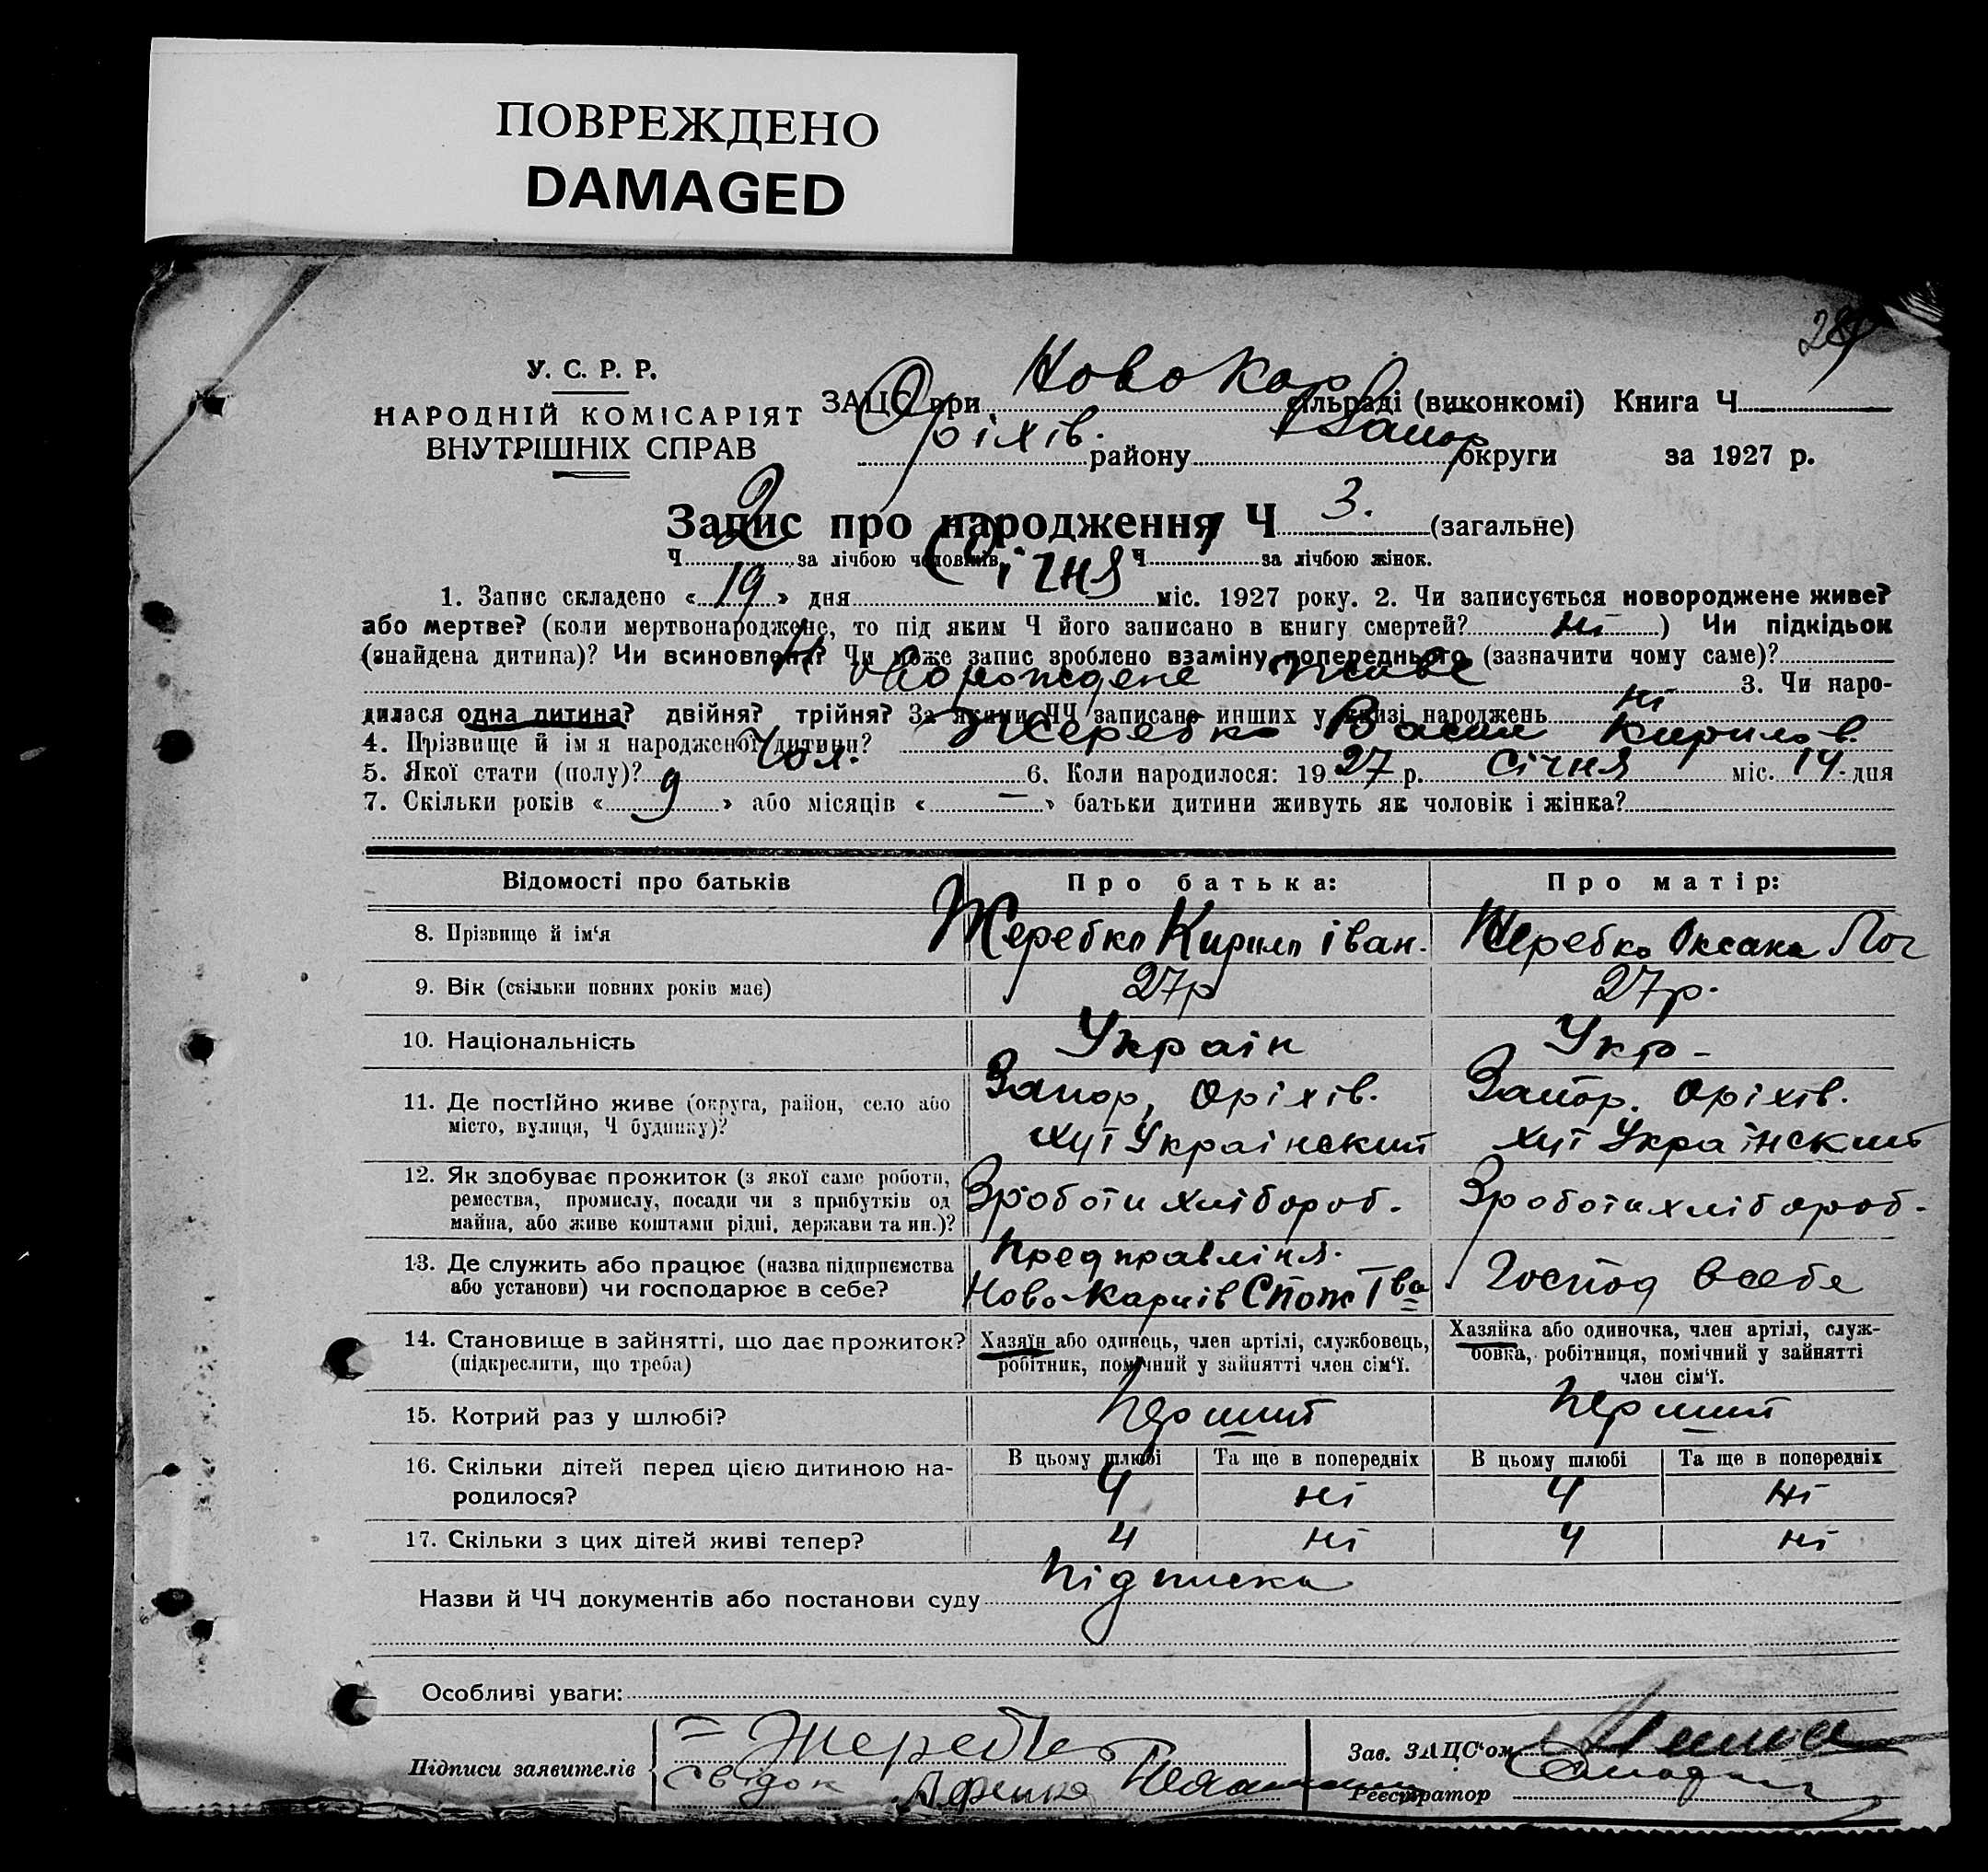 ПОВРЕЖДЕНО
DAMAGED
У. С. Р. Р.
НАРОДНІЙ КОМІСАРІЯТ
ВНУТРІШНІХ СПРАВ
ЗАЦС при Ново Кар сільраді (виконкомі) Книга Ч.
Оріхів. району Запор округи за 1927 р.
Запис про народження Ч 3. (загальне)
Ч. 2 за лічбою чоловіків, Ч за лічбою жінок.
1. Запис складено « 19 » дня Січня міс. 1927 року. 2. Чи записується новороджене живе?
або мертве? (коли мертвонароджене, то під яким Ч його записано в книгу смертей? ні ) Чи підкідьок
(знайдена дитина)? Чи всиновлене? Чи може запис зроблено взаміну попереднього (зазначити чому саме)?
живе 3. Чи наро-
дилася одна дитина? двійня? трійня? За якими ЧЧ записано инших у книзі народжень ні
4. Прізвище й ім'я народженої дитини? Жеребко Васил Кирилов.
5. Якої стати (полу)? Чол. 6. Коли народилося: 19 27 р. Січня міс. 14. дня
7. Скільки років « 9 » або місяців « — » батьки дитини живуть як чоловік і жінка?
Відомості про батьків Про батька: Про матір:
8. Прізвище й ім'я Жеребко Кирило Іван. Жеребко Оксана
9. Вік (скільки повних років має) 27р 27р.
10. Національність Украін Укр-
11. Де постійно живе (округа, район, село або Запор, Оріхів. Запор. Оріхів.
місто, вулиця, Ч будинку)? хут Украінский хут Украінский
12. Як здобуває прожиток (з якої саме роботи, З роботи хлібороб. З роботи хлібороб.
ремества, промислу, посади чи з прибутків од
майна, або живе коштами рідні, держави та ин.)?
13. Де служить або працює (назва підприємства Пред правліня. Господ в себе
або установи) чи господарює в себе? Ново-Карпів Спож Тва
14. Становище в зайнятті, що дає прожиток? Хазяїн або одинець, член артілі, службовець, Хазяйка або одиночка, член артілі, служ-
(підкреслити, що треба) робітник, помічний у зайнятті член сім'ї. бовка, робітниця, помічний у зайнятті
член сім'ї.
15. Котрий раз у шлюбі? перший перший
16. Скільки дітей перед цією дитиною на- В цьому шлюбі Та ще в попередніх В цьому шлюбі Та ще в попередніх
родилося? 4 ні 4 ні
17. Скільки з цих дітей живі тепер? 4 ні 4 ні
Назви й ЧЧ документів або постанови суду підписка
Особливі уваги:
Підписи заявителів Жеребко Зав. ЗАЦС'ом
свідок Реєстратор